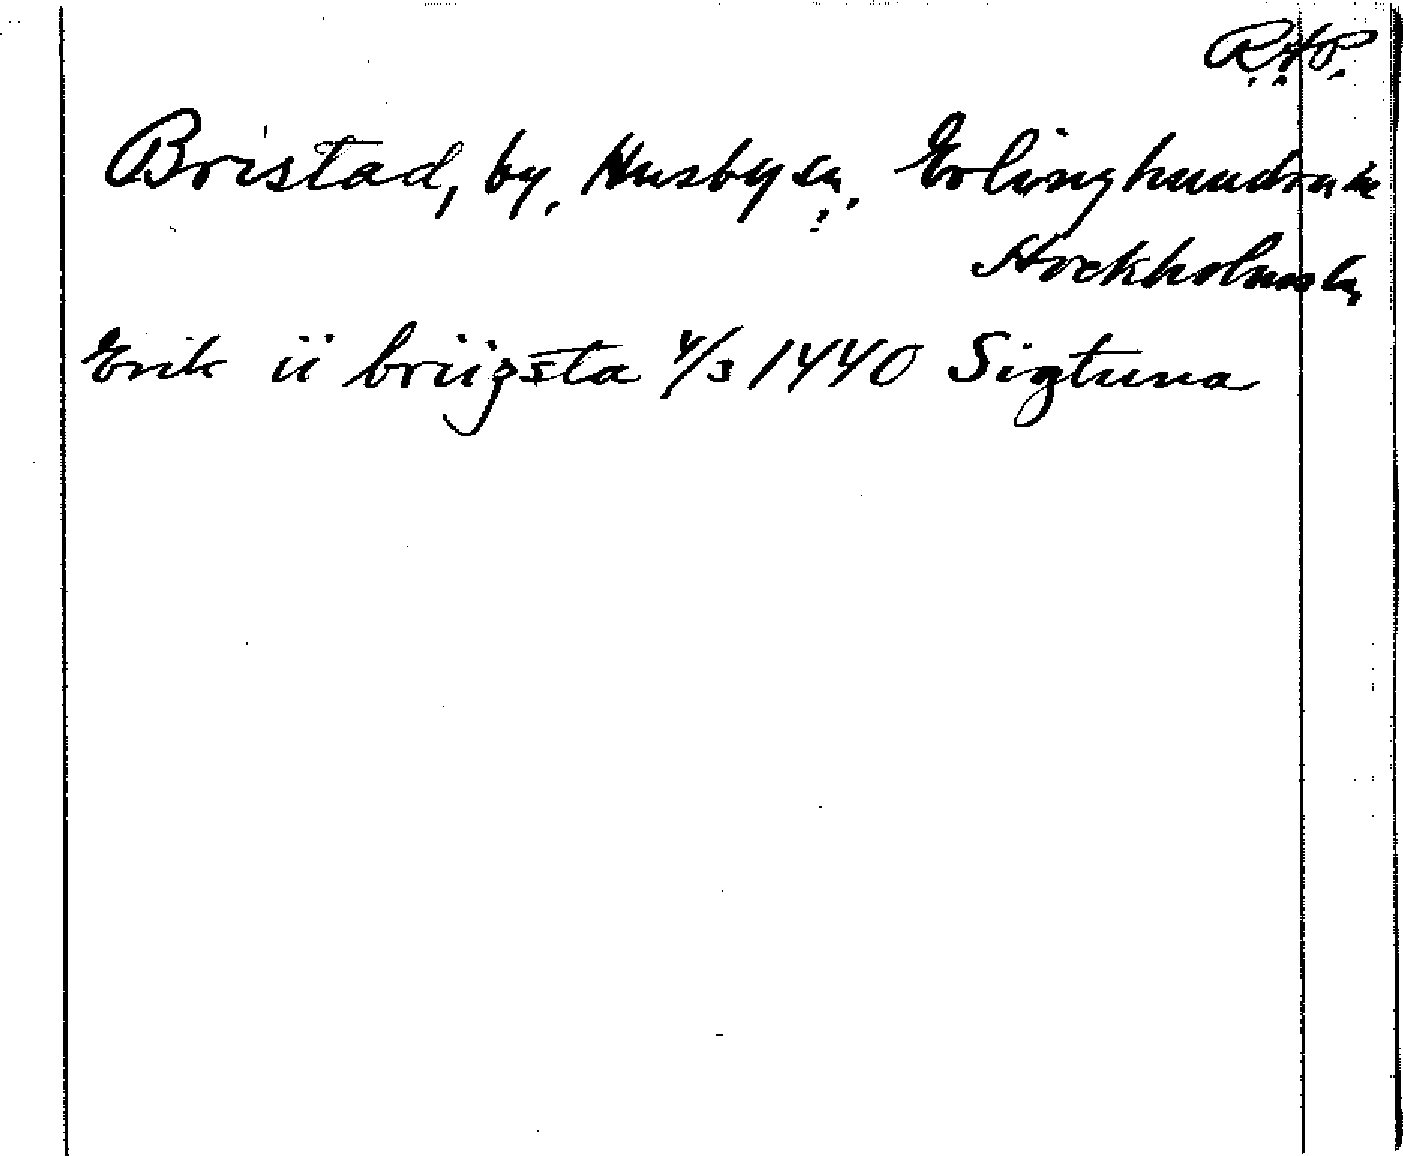 R.A.P.
Bristad, by, Husby sn, Erlinghundra hd
Stockholms län
Erik ii briigsta 4/3 1440 Sigtuna